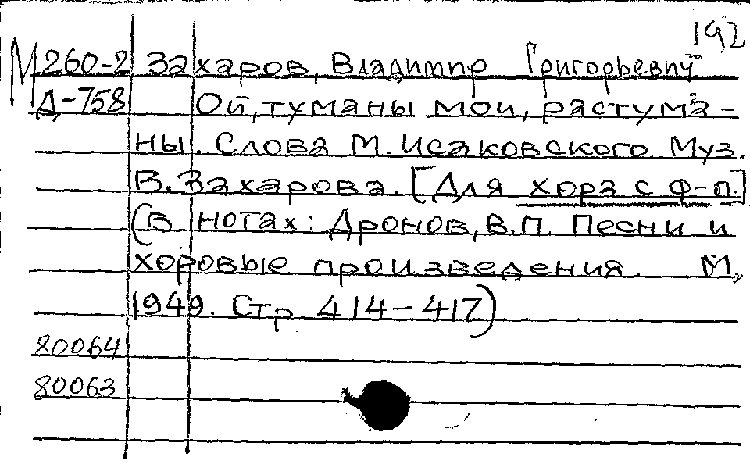 192
М260-2 Захаров, Владимир Григорьевич
Д-758 Ой, туманы мои, растума-
ны. Слова М. Исаковского Муз.
В. Захарова. [Для хора с ф-п.]
(В нотах: Дронов, В.П. Песни и
хоровые произведения. М.,
1949. Стр 414-417)
80064
80063